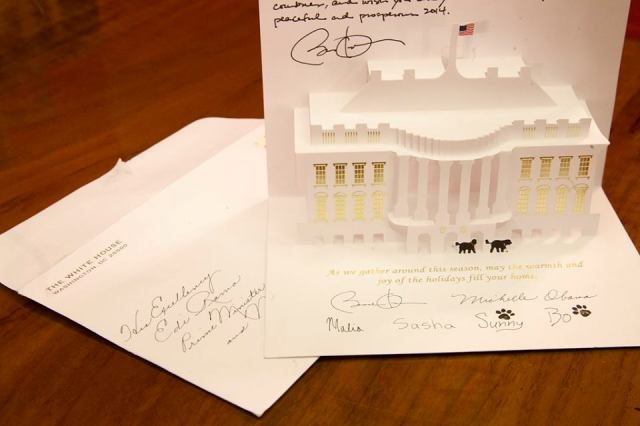 countries, and wish you
peaceful and prosperous 2014.
As we gather around this season, may the warmth and
joy of the holidays fill your home.
Michelle Obama
Malia Sasha Sunny Bo
THE WHITE HOUSE
WASHINGTON DC 20500
His Excellency
Edi Rama
Prime Minister
and